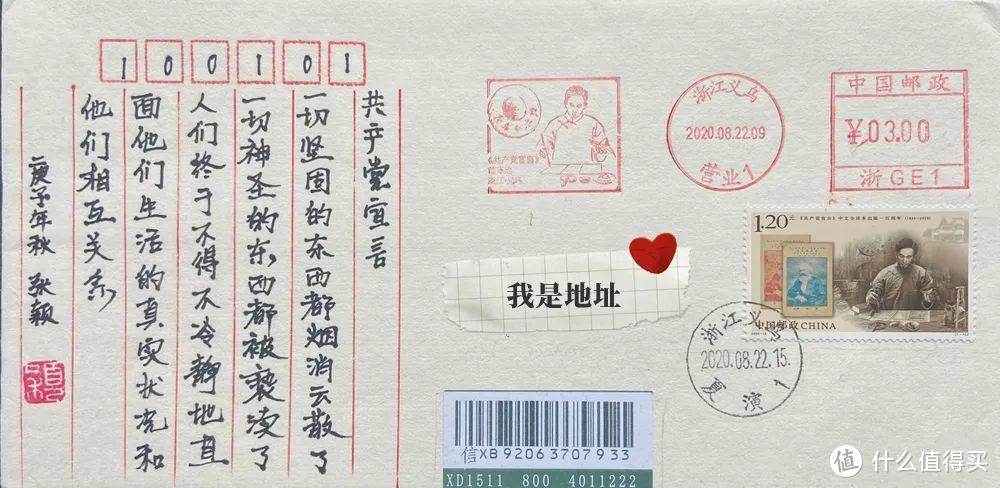 100101
共产党宣言
一切坚固的东西都烟消云散了
一切神圣的东西都被亵渎了
人们终于不得不冷静地直
面他们生活的真实状况和
他们相互关系
庚子年秋 张颖
《共产党宣言》
浙江义乌
2020.08.22.09
营业1
中国邮政
¥03.00
浙GE1
1.20元 《共产党宣言》中文全译本出版一百周年 (1920-2020)
中国邮政CHINA
我是地址
浙江义乌
2020.08.22.15
夏演1
信XB92063707933
XD1511 800 4011222
值 什么值得买